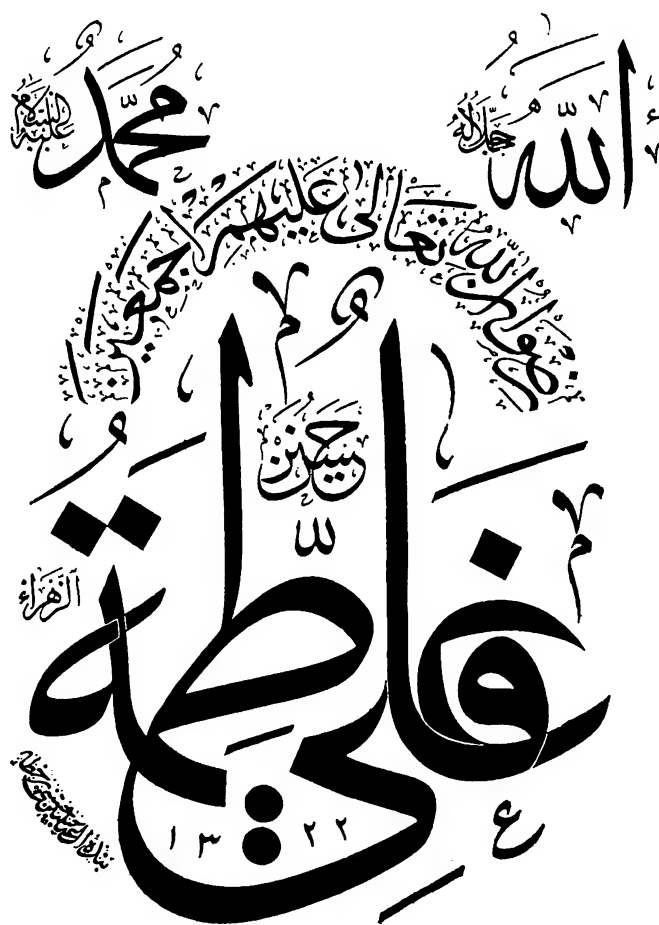 الله جل جلاله
محمد عليه السلام
رضوان الله تعالى عليهم اجمعين
حسين
فاطمة
الزهراء
علي
١٣٢٢